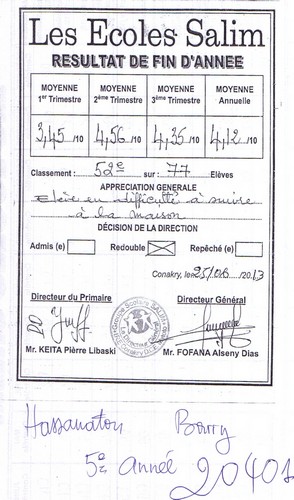 Les Ecoles Salim
RESULTAT DE FIN D'ANNEE
MOYENNE 1er Trimestre MOYENNE 2ème Trimestre MOYENNE 3ème Trimestre MOYENNE Annuelle
3,45 /10 4,56 /10 4,35 /10 4,12 /10
Classement : 52e sur : 77 Elèves
APPRECIATION GENERALE
Elève en difficulté à suivre
à la maison
DÉCISION DE LA DIRECTION
Admis (e) Redouble Repêché (e)
Conakry, le 25/06 /2013
Directeur du Primaire Directeur Général
PO
Mr. KEITA Pièrre Libaski Mr. FOFANA Alseny Dias
Hassanatou Barry
5e année 20401